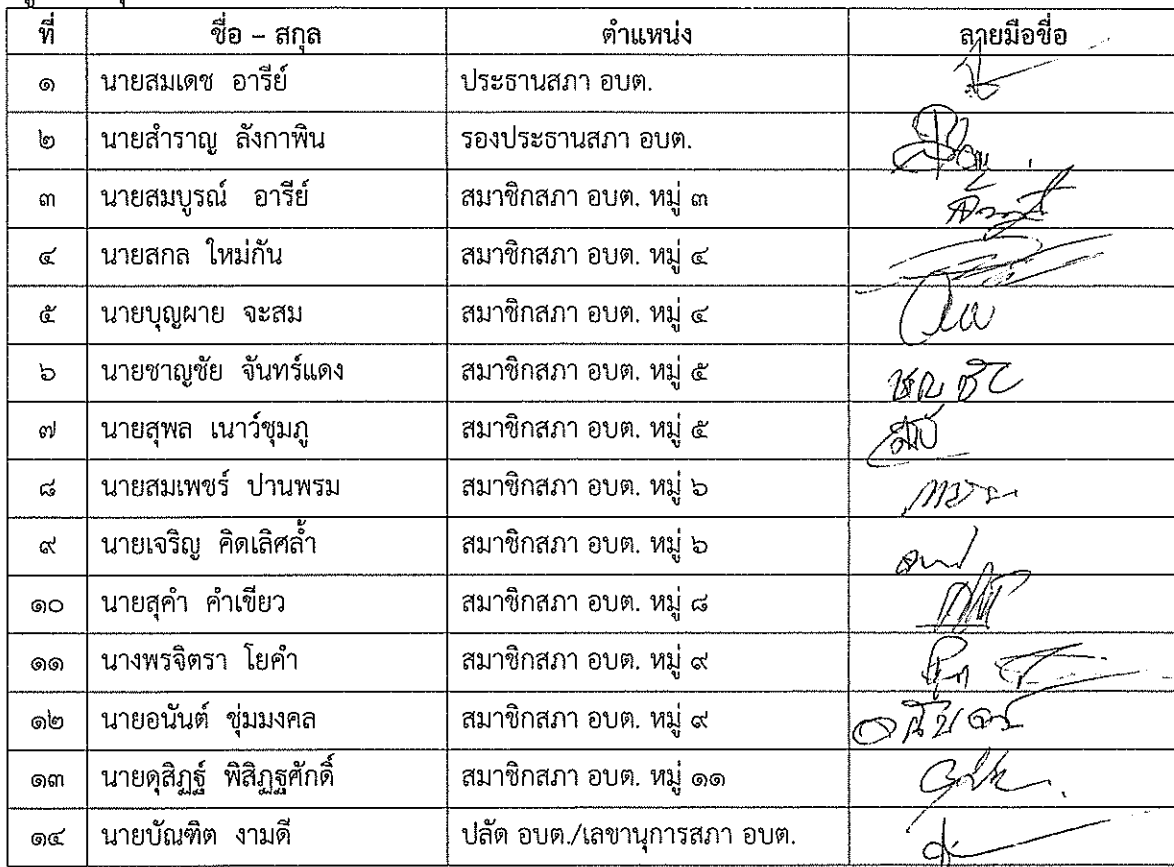 ที่ ชื่อ – สกุล ตำแหน่ง ลายมือชื่อ
๑ นายสมเดช อารีย์ ประธานสภา อบต.
๒ นายสำราญ ลังกาพิน รองประธานสภา อบต.
๓ นายสมบูรณ์ อารีย์ สมาชิกสภา อบต. หมู่ ๓
๔ นายสกล ใหม่กัน สมาชิกสภา อบต. หมู่ ๔
๕ นายบุญผาย จะสม สมาชิกสภา อบต. หมู่ ๔
๖ นายชาญชัย จันทร์แดง สมาชิกสภา อบต. หมู่ ๕
๗ นายสุพล เนาว์ชุมภู สมาชิกสภา อบต. หมู่ ๕
๘ นายสมเพชร์ ปานพรม สมาชิกสภา อบต. หมู่ ๖
๙ นายเจริญ คิดเลิศล้ำ สมาชิกสภา อบต. หมู่ ๖
๑๐ นายสุคำ คำเขียว สมาชิกสภา อบต. หมู่ ๘
๑๑ นางพรจิตรา โยคำ สมาชิกสภา อบต. หมู่ ๙
๑๒ นายอนันต์ ชุ่มมงคล สมาชิกสภา อบต. หมู่ ๙
๑๓ นายดุสิฏฐ์ พิสิฏฐศักดิ์ สมาชิกสภา อบต. หมู่ ๑๑
๑๔ นายบัณฑิต งามดี ปลัด อบต./เลขานุการสภา อบต.